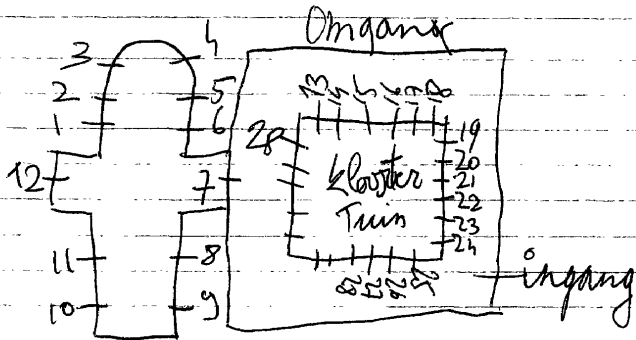 Omgang
3 4
2 5
1 6
12 7
11 8
10 9
13 14 15 16 17 18
28 19
20
21
22
23
24
Klooster
Tuin
28 27 26 25
ingang